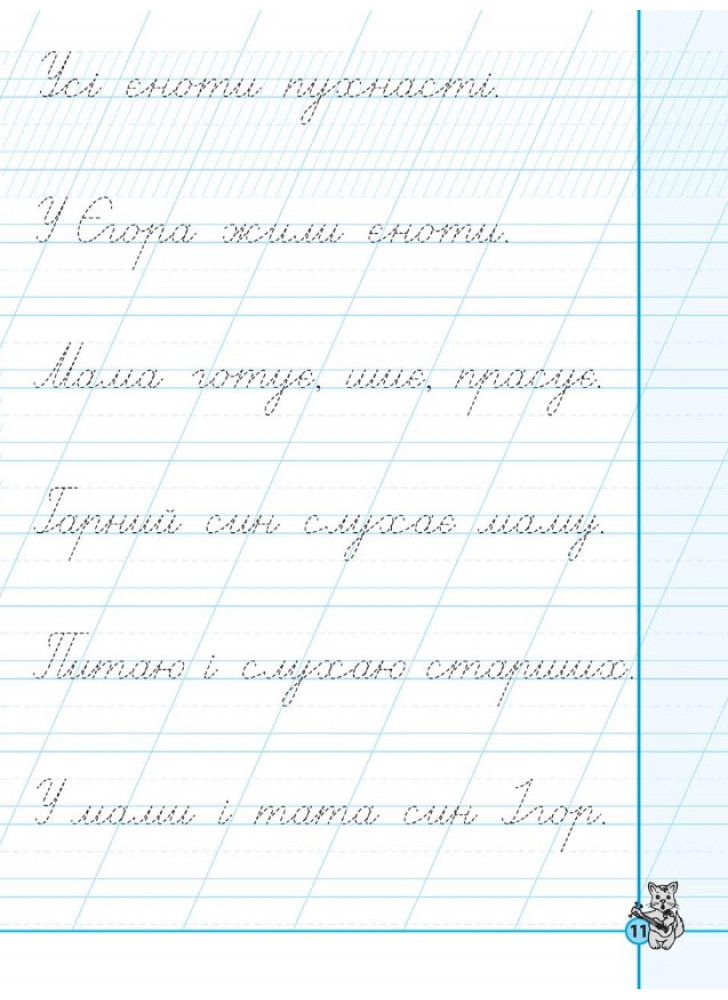 Усі єноти пухнасті.
У Єгора жили єноти.
Мама готує, шиє, прасує.
Гарний син слухає маму.
Питаю і слухаю старших.
У мами і тата син Ігор.
11